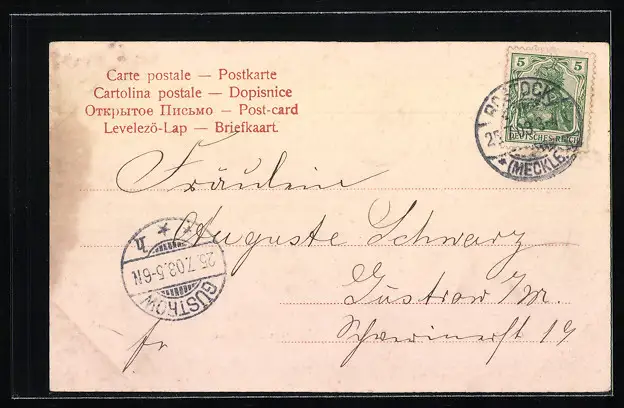 Carte postale — Postkarte
Cartolina postale — Dopisnice
Открытое Письмо — Post-card
Levelező-Lap — Briefkaart.
5 5
DEUTSCHES REICH
ROSTOCK
25.
* (MECKLB.
Fräulein
Auguste Schwarz
Güstrow i/M.
Schwerinerst 19
fr
GÜSTROW
25.7.03.5-6N
* * h